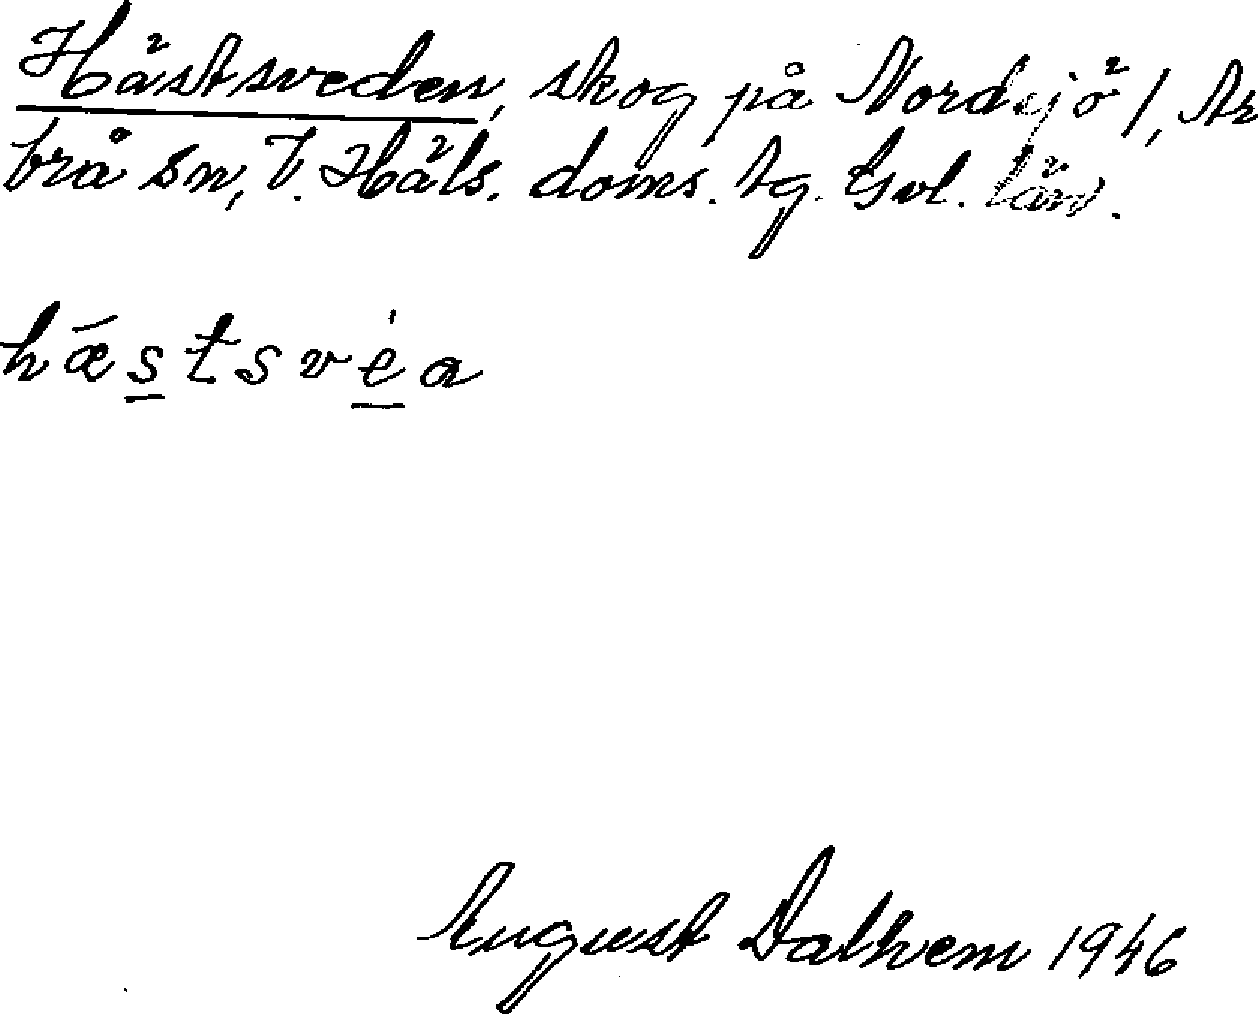 Hästsveden, skog på Nordsjö 1, Ar
brå sn, V. Häls. doms. tg. Gvl. län.
hǣstsvéa
August Dalhem 1946